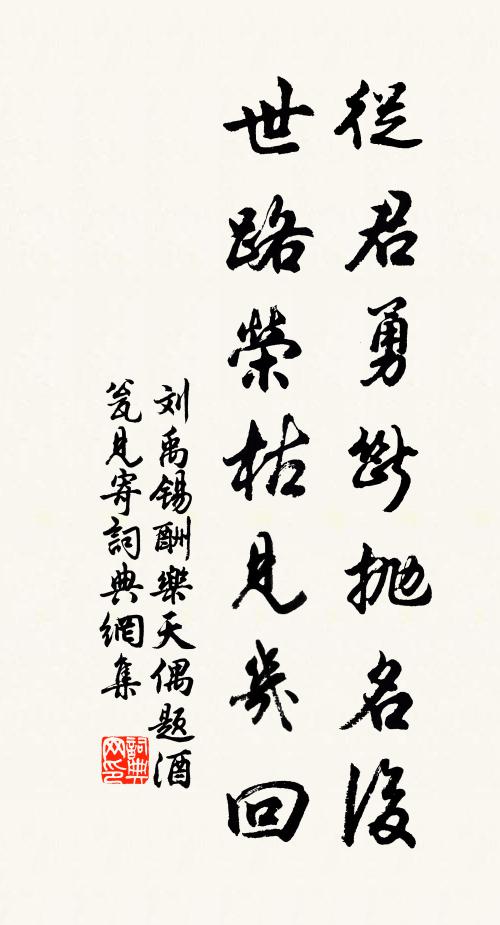 從君勇斷抛名後
世路榮枯見幾回
刘禹锡酬樂天偶题酒
瓮見寄詞典網集
詞典網印